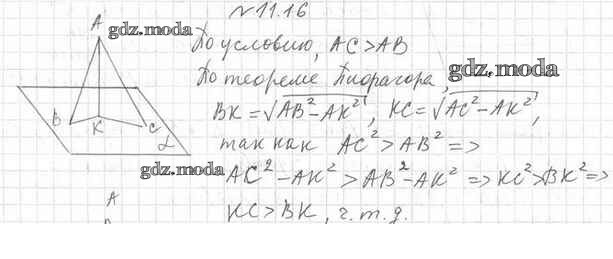 № 11.16
A
gdz.moda
По условию, AC > AB
По теореме Пифагора,
gdz.moda
BK = √AB² - AK², KC = √AC² - AK²,
B
K
C
α
так как AC² > AB² =>
gdz.moda
AC² - AK² > AB² - AK² => KC² > BK² =>
A
KC > BK, ч.т.д.